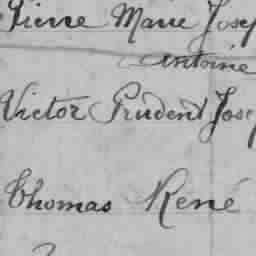 Pierre Marie Josep
Antoine
Victor Prudent Jose
Thomas René